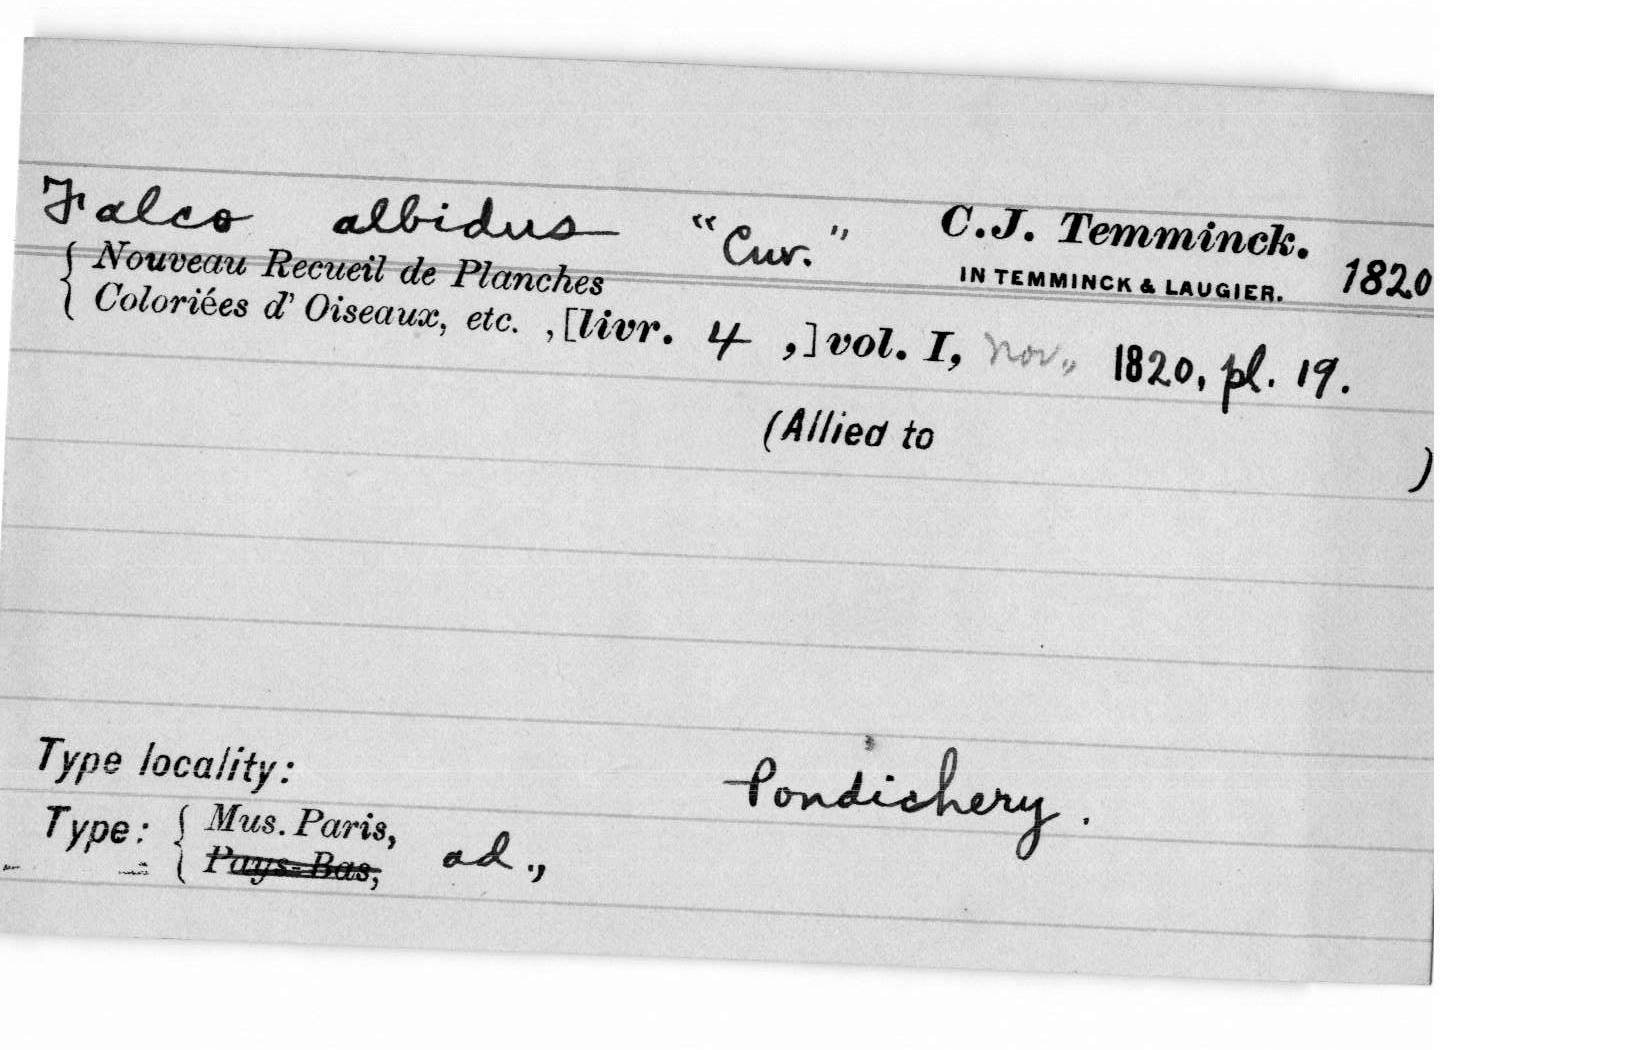 Falco albidus "Cuv." C.J. Temminck.
IN TEMMINCK & LAUGIER. 1820
{ Nouveau Recueil de Planches
Coloriées d' Oiseaux, etc. , [livr. 4 ,] vol. I, Nov., 1820, pl. 19.
(Allied to )
Type locality: Pondichery.
Type: { Mus. Paris,
Pays-Bas, ad.,